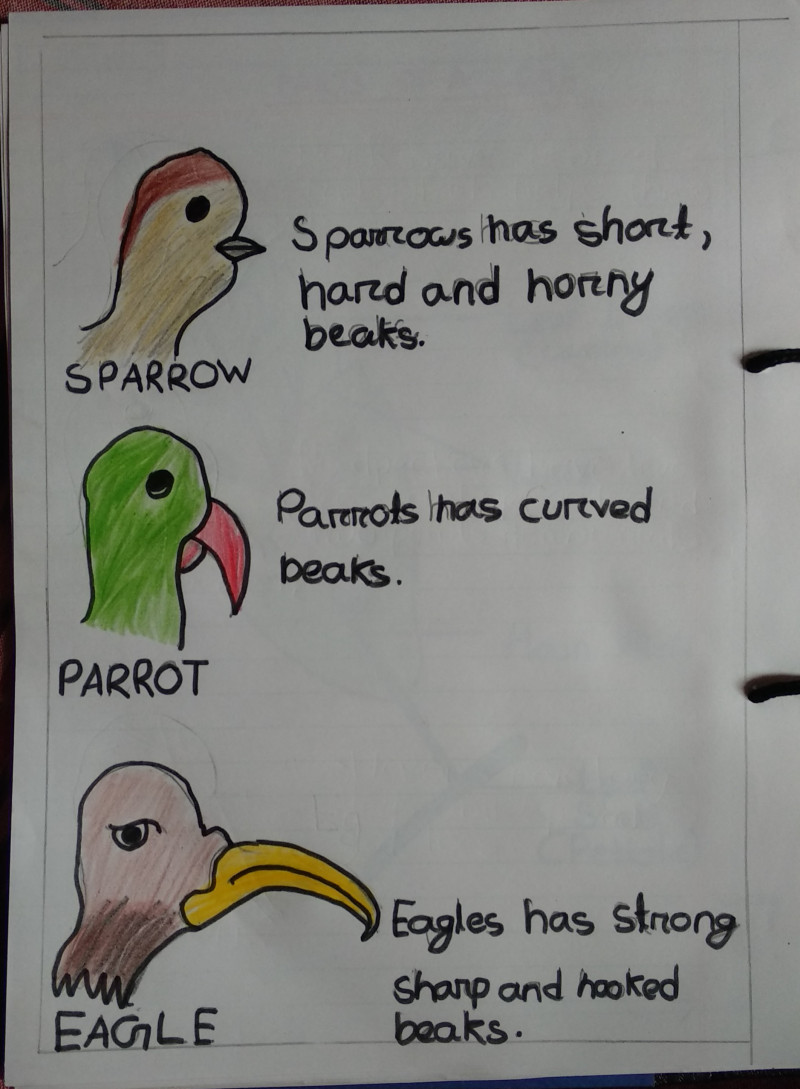 Sparrows has short,
hard and horny
beaks.
SPARROW
Parrots has curved
beaks.
PARROT
Eagles has strong
sharp and hooked
beaks.
EAGLE